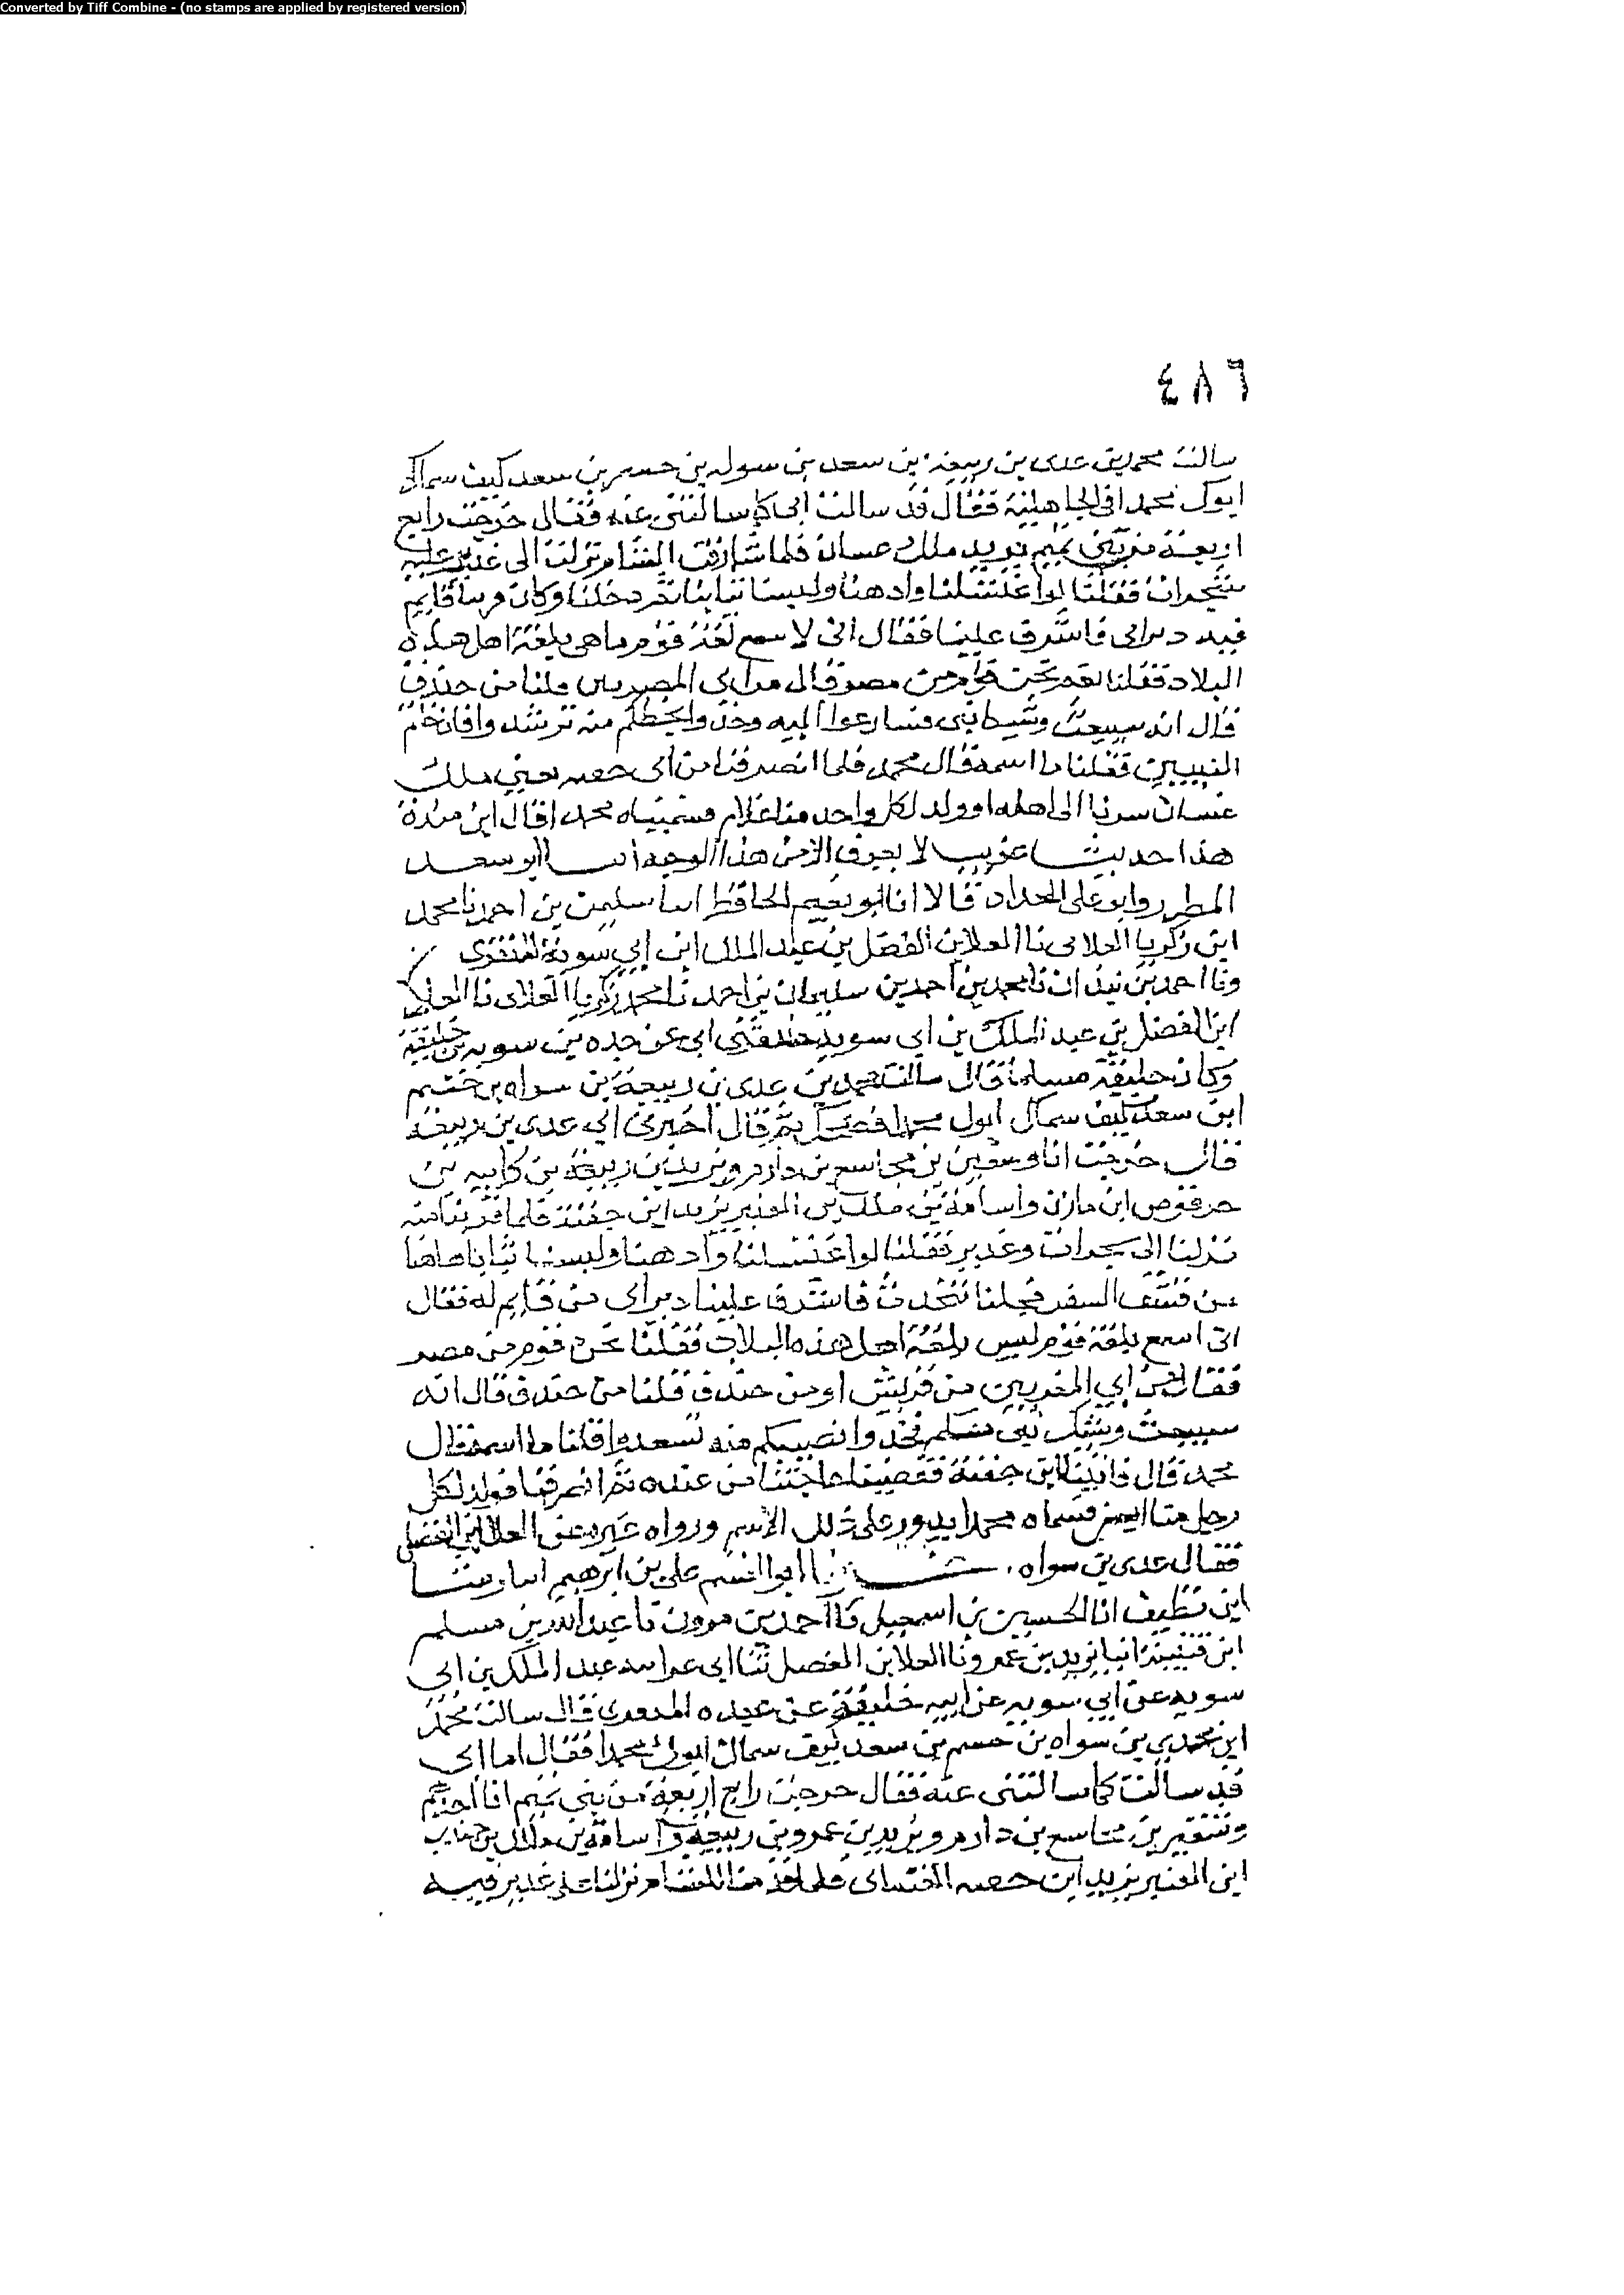 Converted by Tiff Combine - (no stamps are applied by registered version)
٤٨٦
سالت محمد بن عدى بن ربيعة بن سعد بن سوله بن حسم بن سعد كيف سماك
ابوك محمدا فى الجاهلية فقال قد سالت ابى كما سالتنى عنه فقال خرجت رابع
اربعة من بنى تميم نريد ملك عسان فلما شارفت الشام نزلت الى غدير عليه
شجرات فقلنا لو اغتسلنا وادهنا ولبسنا ثيابنا ثم دخلنا وكان قايم
فيه ديرانى فاشرف علينا فقال انى لاسمع لغة قوم ما هى بلغة اهل هذه
البلاد فقلنا نعم نحن قوم من مصر قال من اى المصريين قلنا من خندف
قال انه سيبعث وشيكا نبى فسارعوا اليه وخذوا بحظكم منه ترشدوا فانه خاتم
النبيين فقلنا ما اسمه قال محمد فلما انصرفنا من ابى حعنه يعنى ملك
غسان سرنا الى اهله او ولد لكل واحد منا غلام فسميناه محمدا قال ابن مندة
هذا حديث غريب لا يعرف الا من هذا الوجه انبا ابو سعد
المطرر وابو على الحداد قالا انا ابو نعيم الحافظ انبا سليمن بن احمد نا محمد
ابن زكريا العلابى نا العلا بن الفضل بن عبد الملك ابن ابى سوية المنقرى
ونا احمد بن نا محمد بن احمد بن سليمان بن احمد نا محمد بن زكريا الغلابى نا العلا
ابن الفضل بن عبد الملك بن ابى سويه حدثنى ابى عن جده بن سويه بن خليفة
وكان خليفة مسلما قال سالت محمد بن عدى بن ربيعة بن سواه بن خثيم
ابن سعد كيف سماك ابوك محمدا فضحك ثم قال اخبرنى ابى عدى بن ربيعة
قال خرجت انا وسفين بن مجاسع بن دارم ويزيد بن ربيعة بن كابيه بن
حرقوص ابن مازن واسامة بن ملك بن العنبر نريد ابن جفنة فلما قربنا منه
نزلنا الى شجرات وغدير فقلنا لو اغتسلنا وادهنا ولبسنا ثيابنا هاهنا
من قشف السفر فجعلنا نتحدث فاشرف علينا ديرانى من قايم له فقال
انى اسمع بلغة قوم ليس بلغة اهل هذه البلاد فقلنا نحن قوم من مصر
فقال من اى المضريين من قريش او من خندف قلنا من خندف قال انه
سيبعث وشيك نبى منكم فخذوا نصيبكم منه تسعدوا قلنا ما اسمه فقال
محمد قال فاتينا ابن جفنة فقضينا حاجتنا من عنده ثم انصرفنا فولد لكل
رجل منا ابن فسماه محمدا يدور على ذلك الاسم ورواه غيره عن العلا بن الفضل
فقال عدى بن سواه ابو القسم على بن ابرهيم انبا رشا
ابن نظيف انا الحسين بن اسمعيل نا احمد بن مرون نا عبد الله بن مسلم
ابن قتيبة انبا يزيد بن عمرو نا العلا بن الفضل ثنا ابى عن ابيه عبد الملك بن ابى
سويه عن ابى سويه عن ابيه خليفة عن عبده المنقرى قال سالت محمد
ابن عدى بن سواه بن حسم بن سعد كيف سماك ابوك محمدا فقال اما ابى
قد سالت كما سالتنى عنه فقال خرجت رابع اربعة من بنى تميم انا احدهم
وسفين بن مجاسع بن دارم ويزيد بن عمرو بن ربيعة واسامة بن ملك بن جناب
ابن العنبر نريد ابن حعنه الغسانى فلما قدمنا الشام نزلنا على غدير فيه